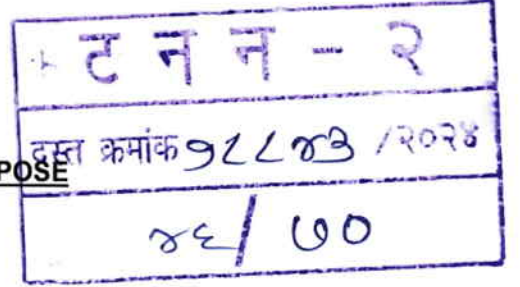 ट न न - २
दस्त क्रमांक १८८४३ /२०२४
POSE
४६/ ७०